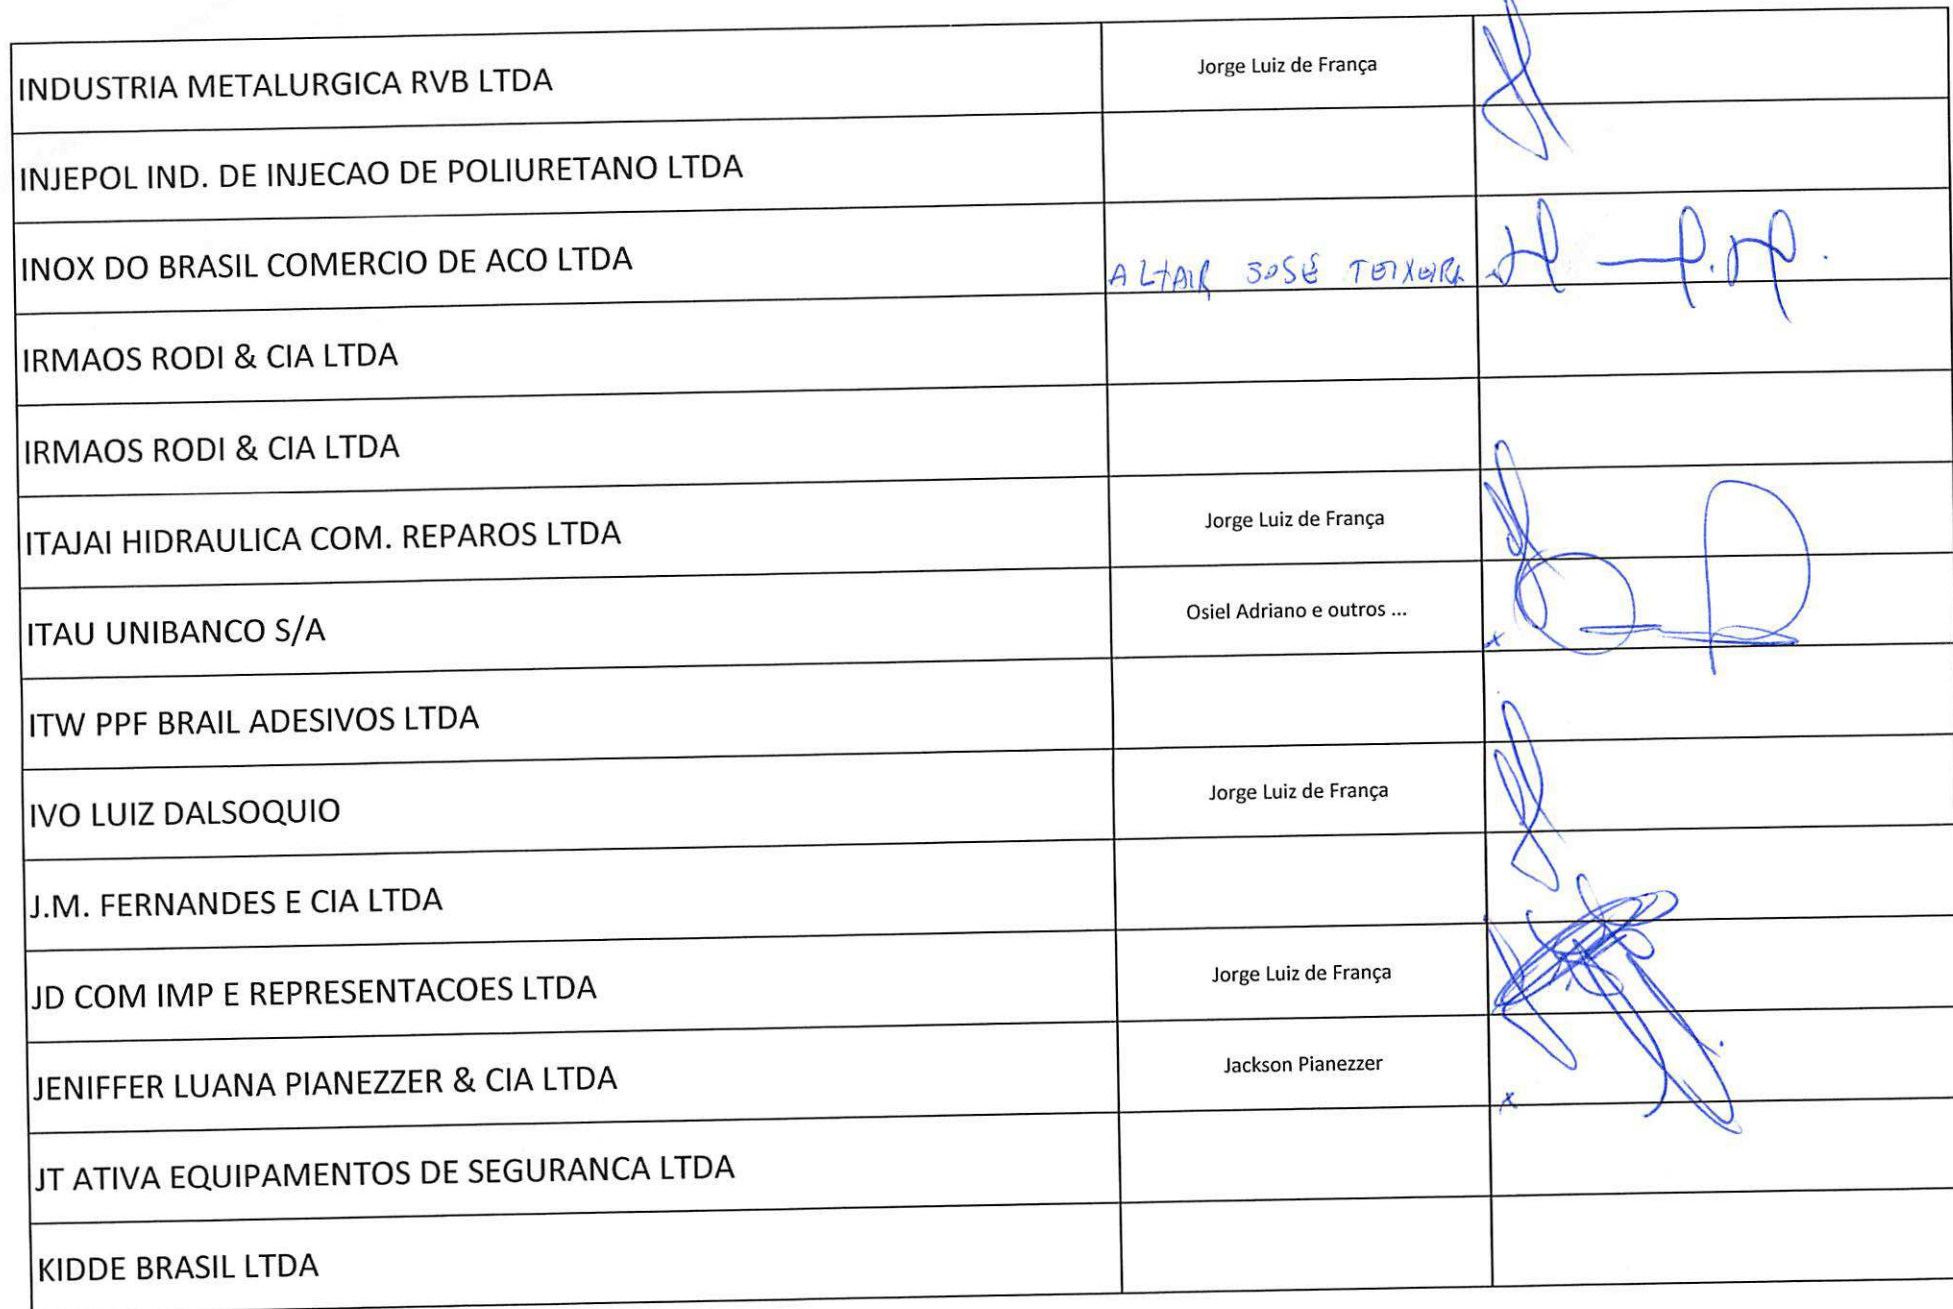 INDUSTRIA METALURGICA RVB LTDA Jorge Luiz de França
INJEPOL IND. DE INJECAO DE POLIURETANO LTDA
INOX DO BRASIL COMERCIO DE ACO LTDA ALTAIR JOSÉ TEIXEIRA
IRMAOS RODI & CIA LTDA
IRMAOS RODI & CIA LTDA
ITAJAI HIDRAULICA COM. REPAROS LTDA Jorge Luiz de França
ITAU UNIBANCO S/A Osiel Adriano e outros ... x
ITW PPF BRAIL ADESIVOS LTDA
IVO LUIZ DALSOQUIO Jorge Luiz de França
J.M. FERNANDES E CIA LTDA
JD COM IMP E REPRESENTACOES LTDA Jorge Luiz de França
JENIFFER LUANA PIANEZZER & CIA LTDA Jackson Pianezzer x
JT ATIVA EQUIPAMENTOS DE SEGURANCA LTDA
KIDDE BRASIL LTDA